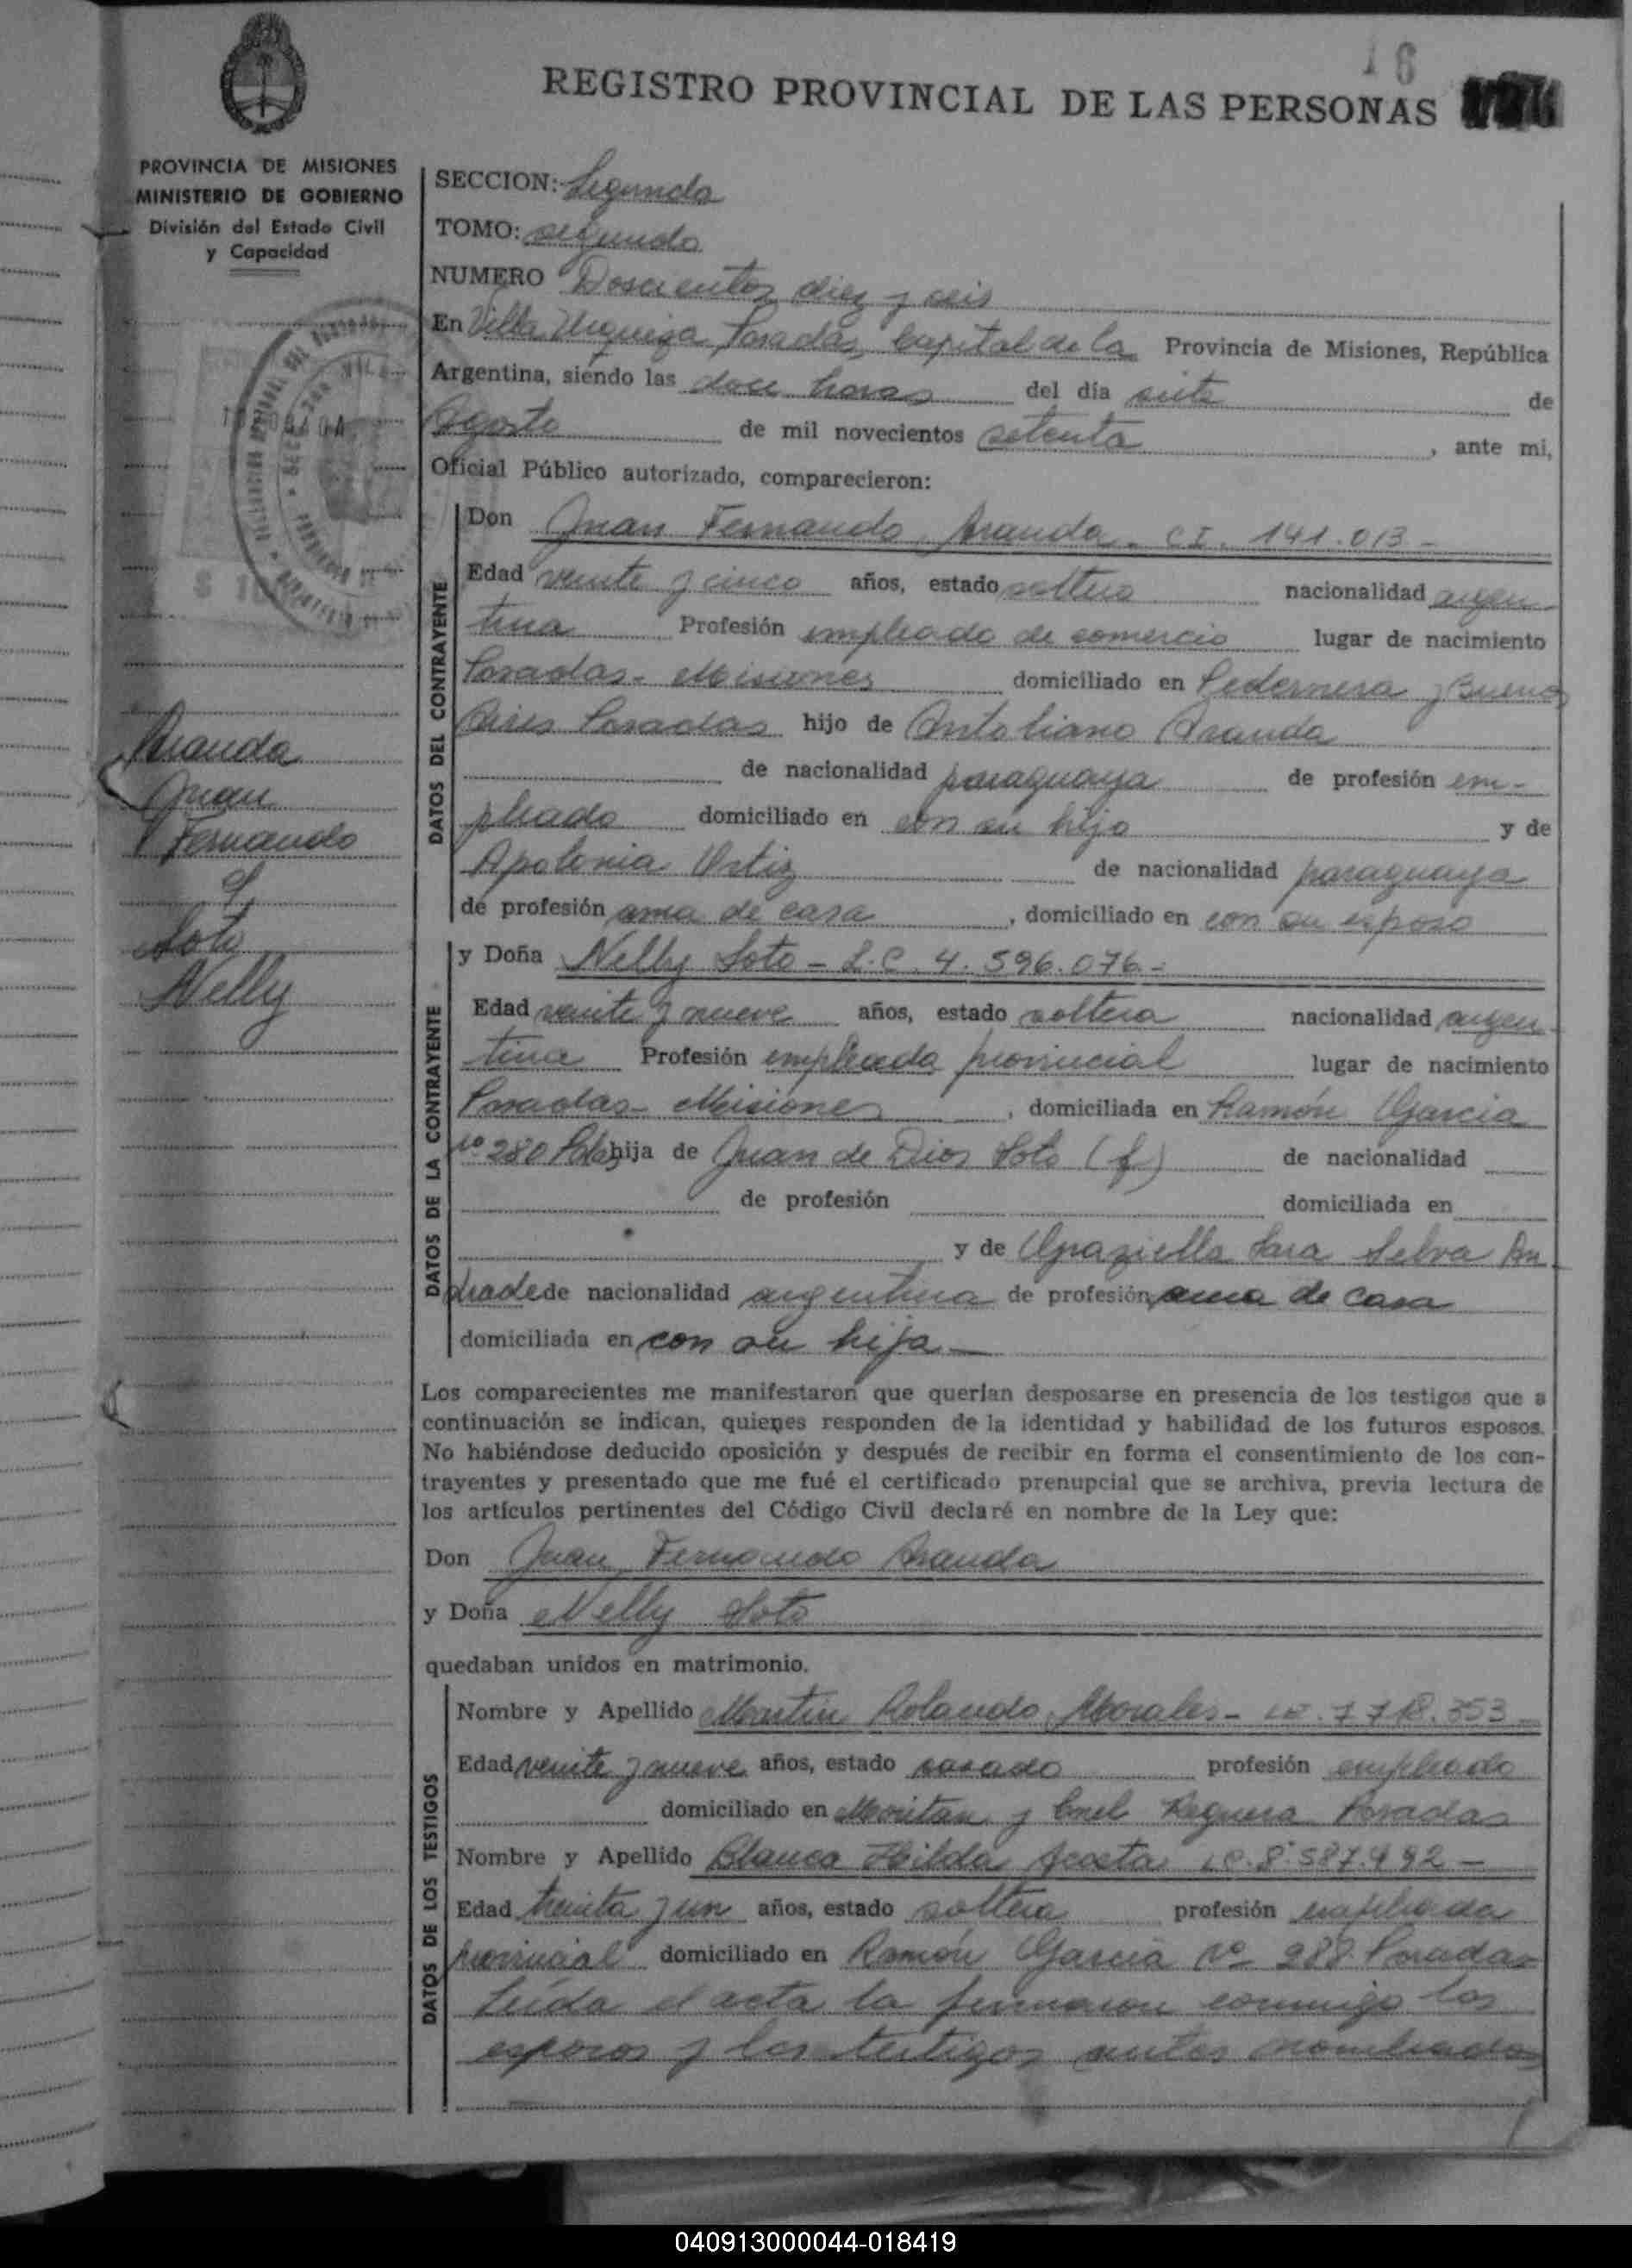 16
REGISTRO PROVINCIAL DE LAS PERSONAS
PROVINCIA DE MISIONES
MINISTERIO DE GOBIERNO
División del Estado Civil
y Capacidad
SECCION: Segunda
TOMO: segundo
NUMERO Doscientos diez y seis
En Villa Urquiza, Posadas, Capital de la Provincia de Misiones, República
Argentina, siendo las doce horas del día siete de
Agosto de mil novecientos setenta, ante mi,
Oficial Público autorizado, comparecieron:
DATOS DEL CONTRAYENTE
Don Juan Fernando Aranda. CI. 141.013-
Edad veinte y cinco años, estado soltero nacionalidad argen-
tina Profesión empleado de comercio lugar de nacimiento
Posadas- Misiones domiciliado en Pedernera y Buenos
Aires Posadas hijo de Antoliano Aranda
de nacionalidad paraguaya de profesión em-
pleado domiciliado en con su hijo y de
Apolonia Ortiz de nacionalidad paraguaya
de profesión ama de casa, domiciliado en con su esposo
Aranda
Juan
Fernando
y
Soto
Nelly
DATOS DE LA CONTRAYENTE
y Doña Nelly Soto - L.C. 4.596.076.-
Edad veinte y nueve años, estado soltera nacionalidad argen-
tina Profesión empleada provincial lugar de nacimiento
Posadas- Misiones, domiciliada en Ramón García
Nº 280 hija de Juan de Dios Soto (f) de nacionalidad
de profesión domiciliada en
y de Graziella Sara Selva An
drade de nacionalidad argentina de profesión ama de casa
domiciliada en con su hija -
Los comparecientes me manifestaron que querían desposarse en presencia de los testigos que a
continuación se indican, quienes responden de la identidad y habilidad de los futuros esposos.
No habiéndose deducido oposición y después de recibir en forma el consentimiento de los con-
trayentes y presentado que me fué el certificado prenupcial que se archiva, previa lectura de
los artículos pertinentes del Código Civil declaré en nombre de la Ley que:
Don Juan Fernando Aranda
y Doña Nelly Soto
quedaban unidos en matrimonio.
DATOS DE LOS TESTIGOS
Nombre y Apellido Martin Rolando Morales-
Edad veinte y nueve años, estado casado profesión empleado
domiciliado en y Cnel Reguera Posadas
Nombre y Apellido Blanca Hilda Acosta
Edad treinta y un años, estado soltera profesión empleada
provincial domiciliado en Ramón García Nº 288 Posadas
Leída el acta la firmaron conmigo los
esposos y los testigos antes nombrados
040913000044-018419